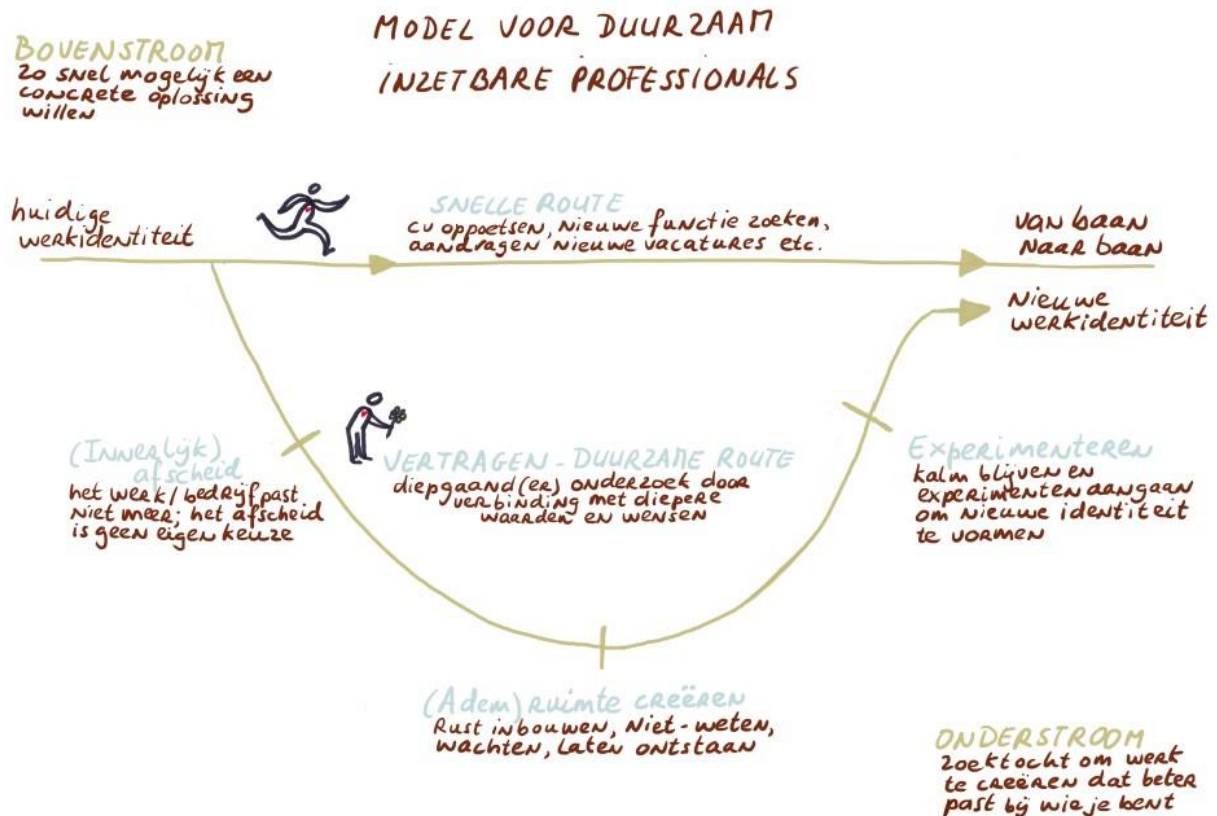 MODEL VOOR DUURZAAM
INZETBARE PROFESSIONALS
BOVENSTROOM
zo snel mogelijk een
concrete oplossing
willen
huidige
werkidentiteit
SNELLE ROUTE
cv oppoetsen, nieuwe functie zoeken,
aandragen nieuwe vacatures etc.
van baan
naar baan
Nieuwe
werkidentiteit
(Innerlijk)
afscheid
het werk/bedrijf past
niet meer; het afscheid
is geen eigen keuze
VERTRAGEN - DUURZAME ROUTE
diepgaand(er) onderzoek door
verbinding met diepere
waarden en wensen
Experimenteren
kalm blijven en
experimenten aangaan
om nieuwe identiteit
te vormen
(Adem)ruimte creëren
Rust inbouwen, niet-weten,
wachten, laten ontstaan
ONDERSTROOM
zoektocht om werk
te creëren dat beter
past bij wie je bent